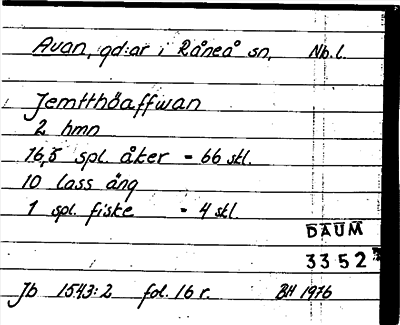 Avan, gd:ar i Råneå sn, Nb.l.
Jemtthöaffwan
2 hmn
16,5 spl. åker = 66 skl.
10 lass äng
1 spl. fiske = 4 skl.
DAUM
3352
Jb 1543:2 fol. 16 r. BH 1976